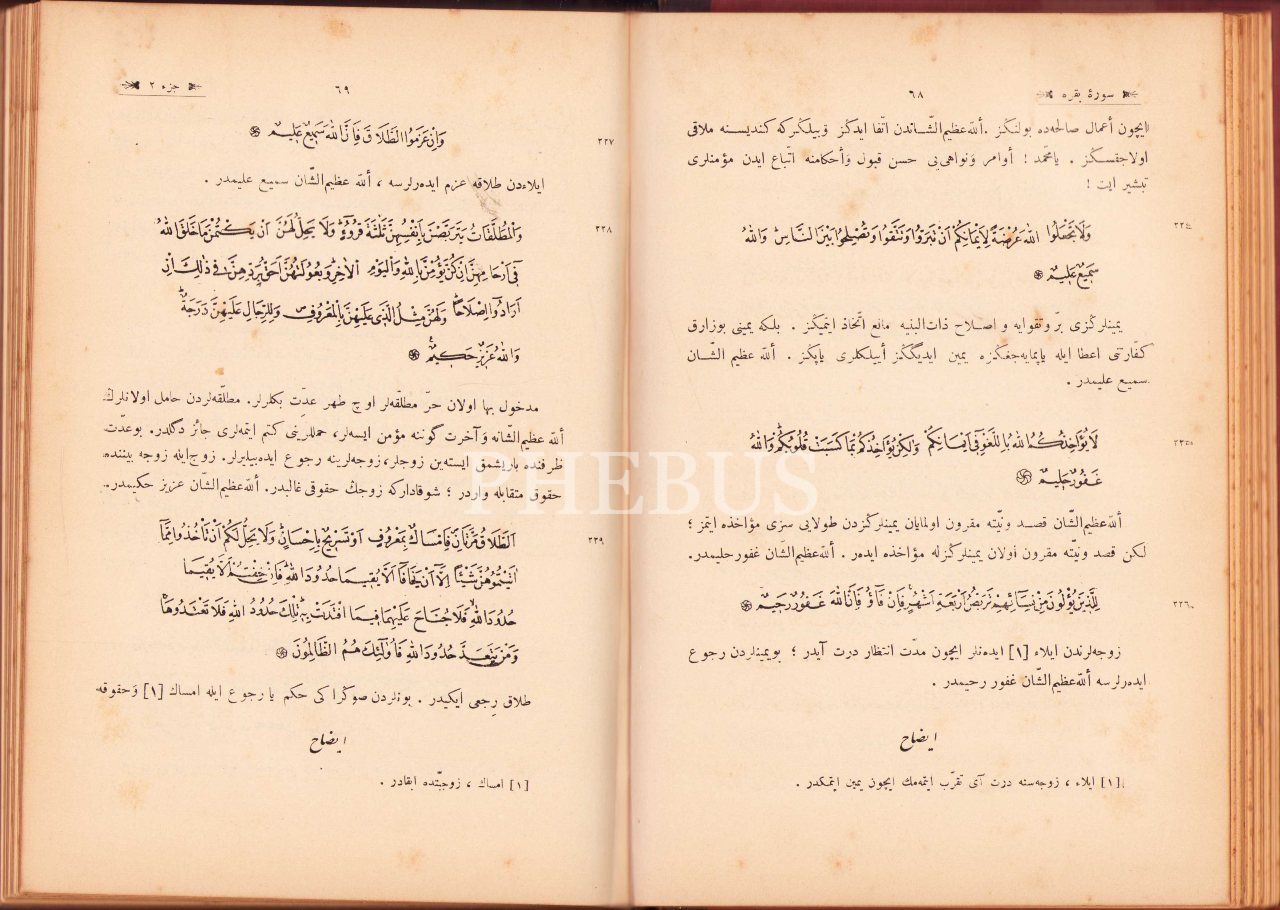 سورهٔ بقره
٦٨
ایچون أعمال صالحه‌ده بولنڭز . ألله عظیم الشّاندن اتّقا ایدڭز وَبیلڭزكه كندیسنه ملاقی
اولاجقسڭز . یامحمّد ! أوامر وَنواهی‌یی حسن قبول وَأحكامنه اتّباع ایدن مؤمنلری
تبشیر ایت !
٢٢٤
وَلَا تَجْعَلُوا اللّٰهَ عُرْضَةً لِاَيْمَانِكُمْ اَنْ تَبَرُّوا وَتَتَّقُوا وَتُصْلِحُوا بَيْنَ النَّاسِ وَاللّٰهُ
سَمِيعٌ عَلِيمٌ
یمینلرڭزی برّ وتقوایه و اصلاح ذات‌البنیه مانع اتّخاذ ایتمیڭز . بلكه یمینی بوزارق
كفّارتی اعطا ایله یاپمایه‌جغڭزه یمین ایدیگڭز أییلكلری یاپڭز . ألله عظیم الشّان
سمیع علیمدر .
٢٢٥
لَا يُؤَاخِذُكُمُ اللّٰهُ بِاللَّغْوِ فِى اَيْمَانِكُمْ وَلٰكِنْ يُؤَاخِذُكُمْ بِمَا كَسَبَتْ قُلُوبُكُمْ وَاللّٰهُ
غَفُورٌ حَلِيمٌ
ألله عظیم الشّان قصد ونیّته مقرون اولمایان یمینلرڭزدن طولایی سزی مؤاخذه ایتمز ؛
لكن قصد ونیّته مقرون اولان یمینلرڭزله مؤاخذه ایده‌ر . ألله عظیم الشّان غفور حلیمدر.
٢٢٦
لِلَّذِينَ يُؤْلُونَ مِنْ نِسَائِهِمْ تَرَبُّصُ اَرْبَعَةِ اَشْهُرٍ فَاِنْ فَاؤُ فَاِنَّ اللّٰهَ غَفُورٌ رَحِيمٌ
زوجه‌لرندن ایلاء [١] ایده‌نلر ایچون مدّت انتظار درت آیدر ؛ بویمینلردن رجوع
ایده‌رلرسه ألله عظیم الشّان غفور رحیمدر .
ایضاح
[١] ایلاء ، زوجه‌سنه درت آی تقرّب ایتمه‌مك ایچون یمین ایتمكدر .
٦٩
جزء ٢
٢٢٧
وَاِنْ عَزَمُوا الطَّلَاقَ فَاِنَّ اللّٰهَ سَمِيعٌ عَلِيمٌ
ایلاءدن طلاقه عزم ایده‌رلرسه ، ألله عظیم الشّان سمیع علیمدر .
٢٢٨
وَالْمُطَلَّقَاتُ يَتَرَبَّصْنَ بِاَنْفُسِهِنَّ ثَلٰثَةَ قُرُوءٍ وَلَا يَحِلُّ لَهُنَّ اَنْ يَكْتُمْنَ مَا خَلَقَ اللّٰهُ
فِى اَرْحَامِهِنَّ اِنْ كُنَّ يُؤْمِنَّ بِاللّٰهِ وَالْيَوْمِ الْاٰخِرِ وَبُعُولَتُهُنَّ اَحَقُّ بِرَدِّهِنَّ فِى ذٰلِكَ اِنْ
اَرَادُوا اِصْلَاحًا وَلَهُنَّ مِثْلُ الَّذِى عَلَيْهِنَّ بِالْمَعْرُوفِ وَلِلرِّجَالِ عَلَيْهِنَّ دَرَجَةٌ
وَاللّٰهُ عَزِيزٌ حَكِيمٌ
مدخول بها اولان حرّ مطلّقه‌لر اوچ طهر عدّت بكلرلر. مطلّقه‌لردن حامل اولانلرڭ
ألله عظیم الشّانه وَآخرت گوننه مؤمن ایسه‌لر، حمللرینی كتم ایتمه‌لری جائز دگلدر. بوعدّت
ظرفنده باریشمق ایسته‌ین زوجلر، زوجه‌لرینه رجوع ایده‌بیلیرلر. زوج‌ایله زوجه بیننده
حقوق متقابله واردر ؛ شوقاداركه زوجڭ حقوقی غالبدر. ألله عظیم الشان عزیز حكیمدر.
٢٢٩
اَلطَّلَاقُ مَرَّتَانِ فَاِمْسَاكٌ بِمَعْرُوفٍ اَوْ تَسْرِيحٌ بِاِحْسَانٍ وَلَا يَحِلُّ لَكُمْ اَنْ تَأْخُذُوا مِمَّا
اٰتَيْتُمُوهُنَّ شَيْئًا اِلَّا اَنْ يَخَافَا اَلَّا يُقِيمَا حُدُودَ اللّٰهِ فَاِنْ خِفْتُمْ اَلَّا يُقِيمَا
حُدُودَ اللّٰهِ فَلَا جُنَاحَ عَلَيْهِمَا فِيمَا افْتَدَتْ بِهِ تِلْكَ حُدُودُ اللّٰهِ فَلَا تَعْتَدُوهَا
وَمَنْ يَتَعَدَّ حُدُودَ اللّٰهِ فَاُولٰئِكَ هُمُ الظَّالِمُونَ
طلاق رجعی ایكیدر . بونلردن صوڭرا كی حكم یا رجوع ایله امساك [١] وَحقوقه
ایضاح
[١] امساك ، زوجیّتده ابقادر .
PHEBUS